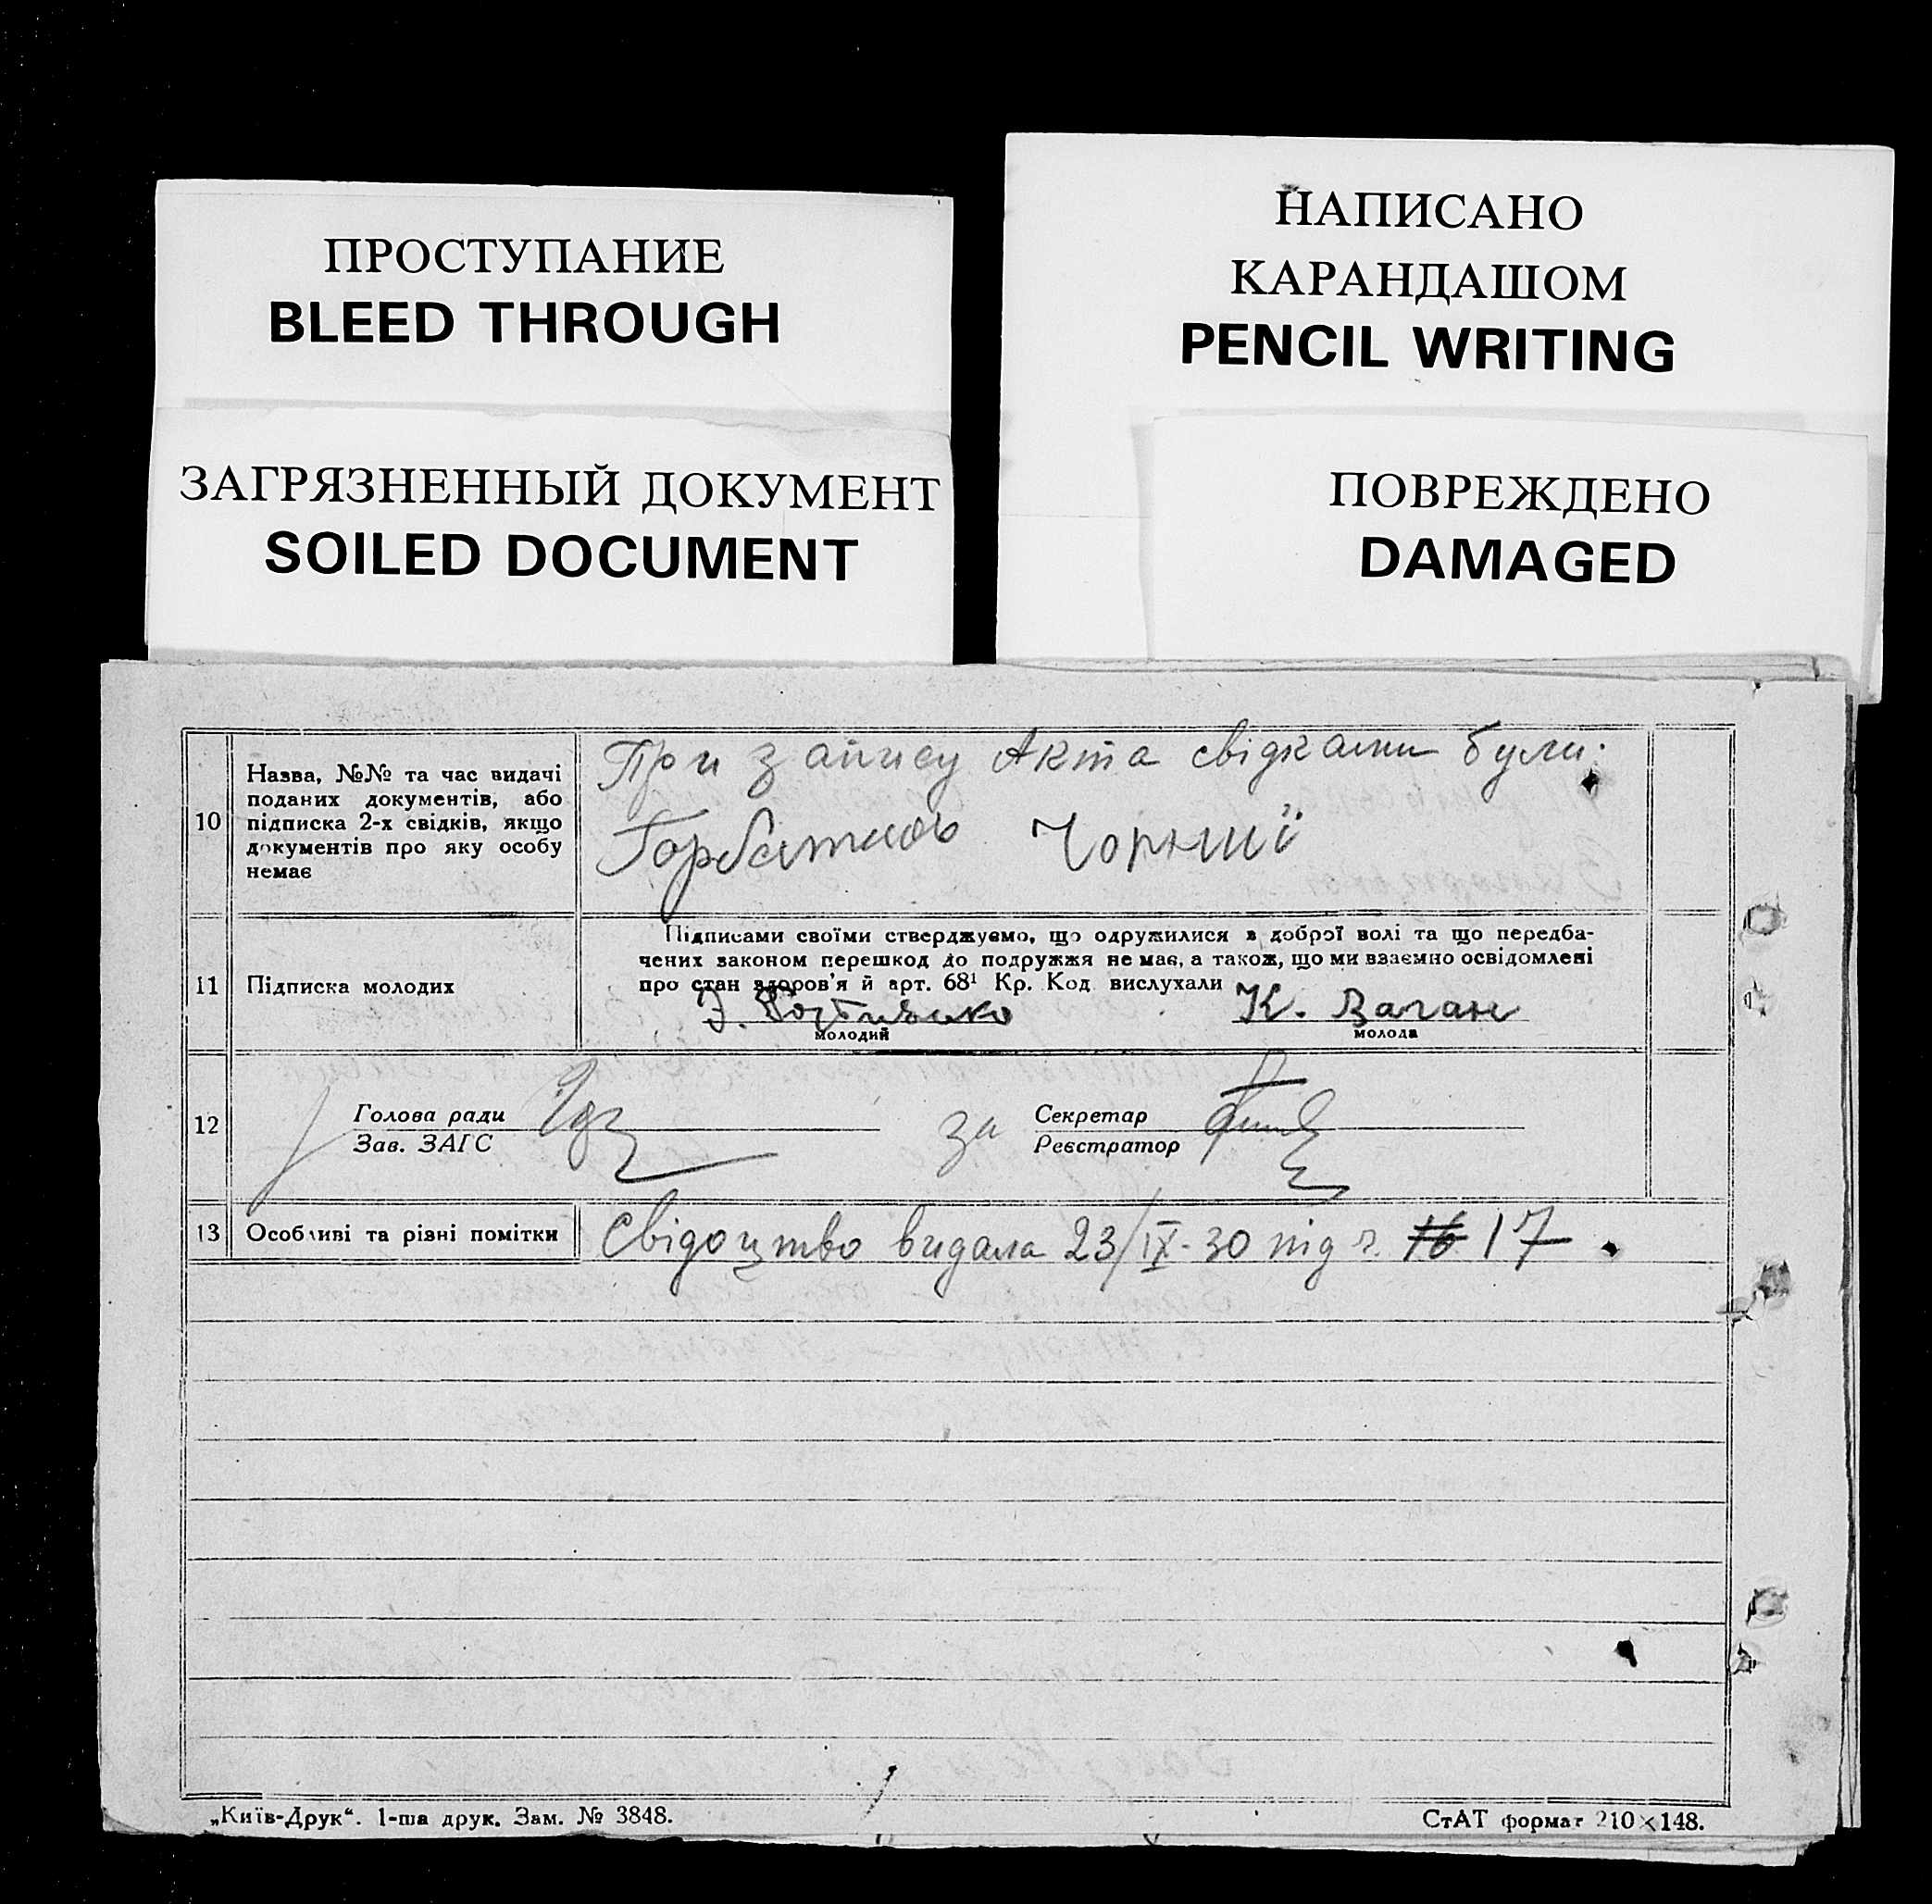 ПРОСТУПАНИЕ
BLEED THROUGH
НАПИСАНО
КАРАНДАШОМ
PENCIL WRITING
ЗАГРЯЗНЕННЫЙ ДОКУМЕНТ
SOILED DOCUMENT
ПОВРЕЖДЕНО
DAMAGED
10
Назва, №№ та час видачі
поданих документів, або
підписка 2-х свідків, якщо
документів про яку особу
немає
При запису Акта свідками були:
Чорний
11
Підписка молодих
Підписами своїми стверджуємо, що одружилися з доброї волі та що передба-
чених законом перешкод до подружжя немає, а також, що ми взаємно освідомлені
про стан здоров'я й арт. 68¹ Кр. Код. вислухали
К. Ваган
молодий
молода
12
Голова ради
Зав. ЗАГС
за
Секретар
Реєстратор
13
Особливі та різні помітки
Свідоцтво видала 23/IX-30 під г. 16 17
„Київ-Друк“. 1-ша друк. Зам. № 3848.
СтАТ формат 210×148.